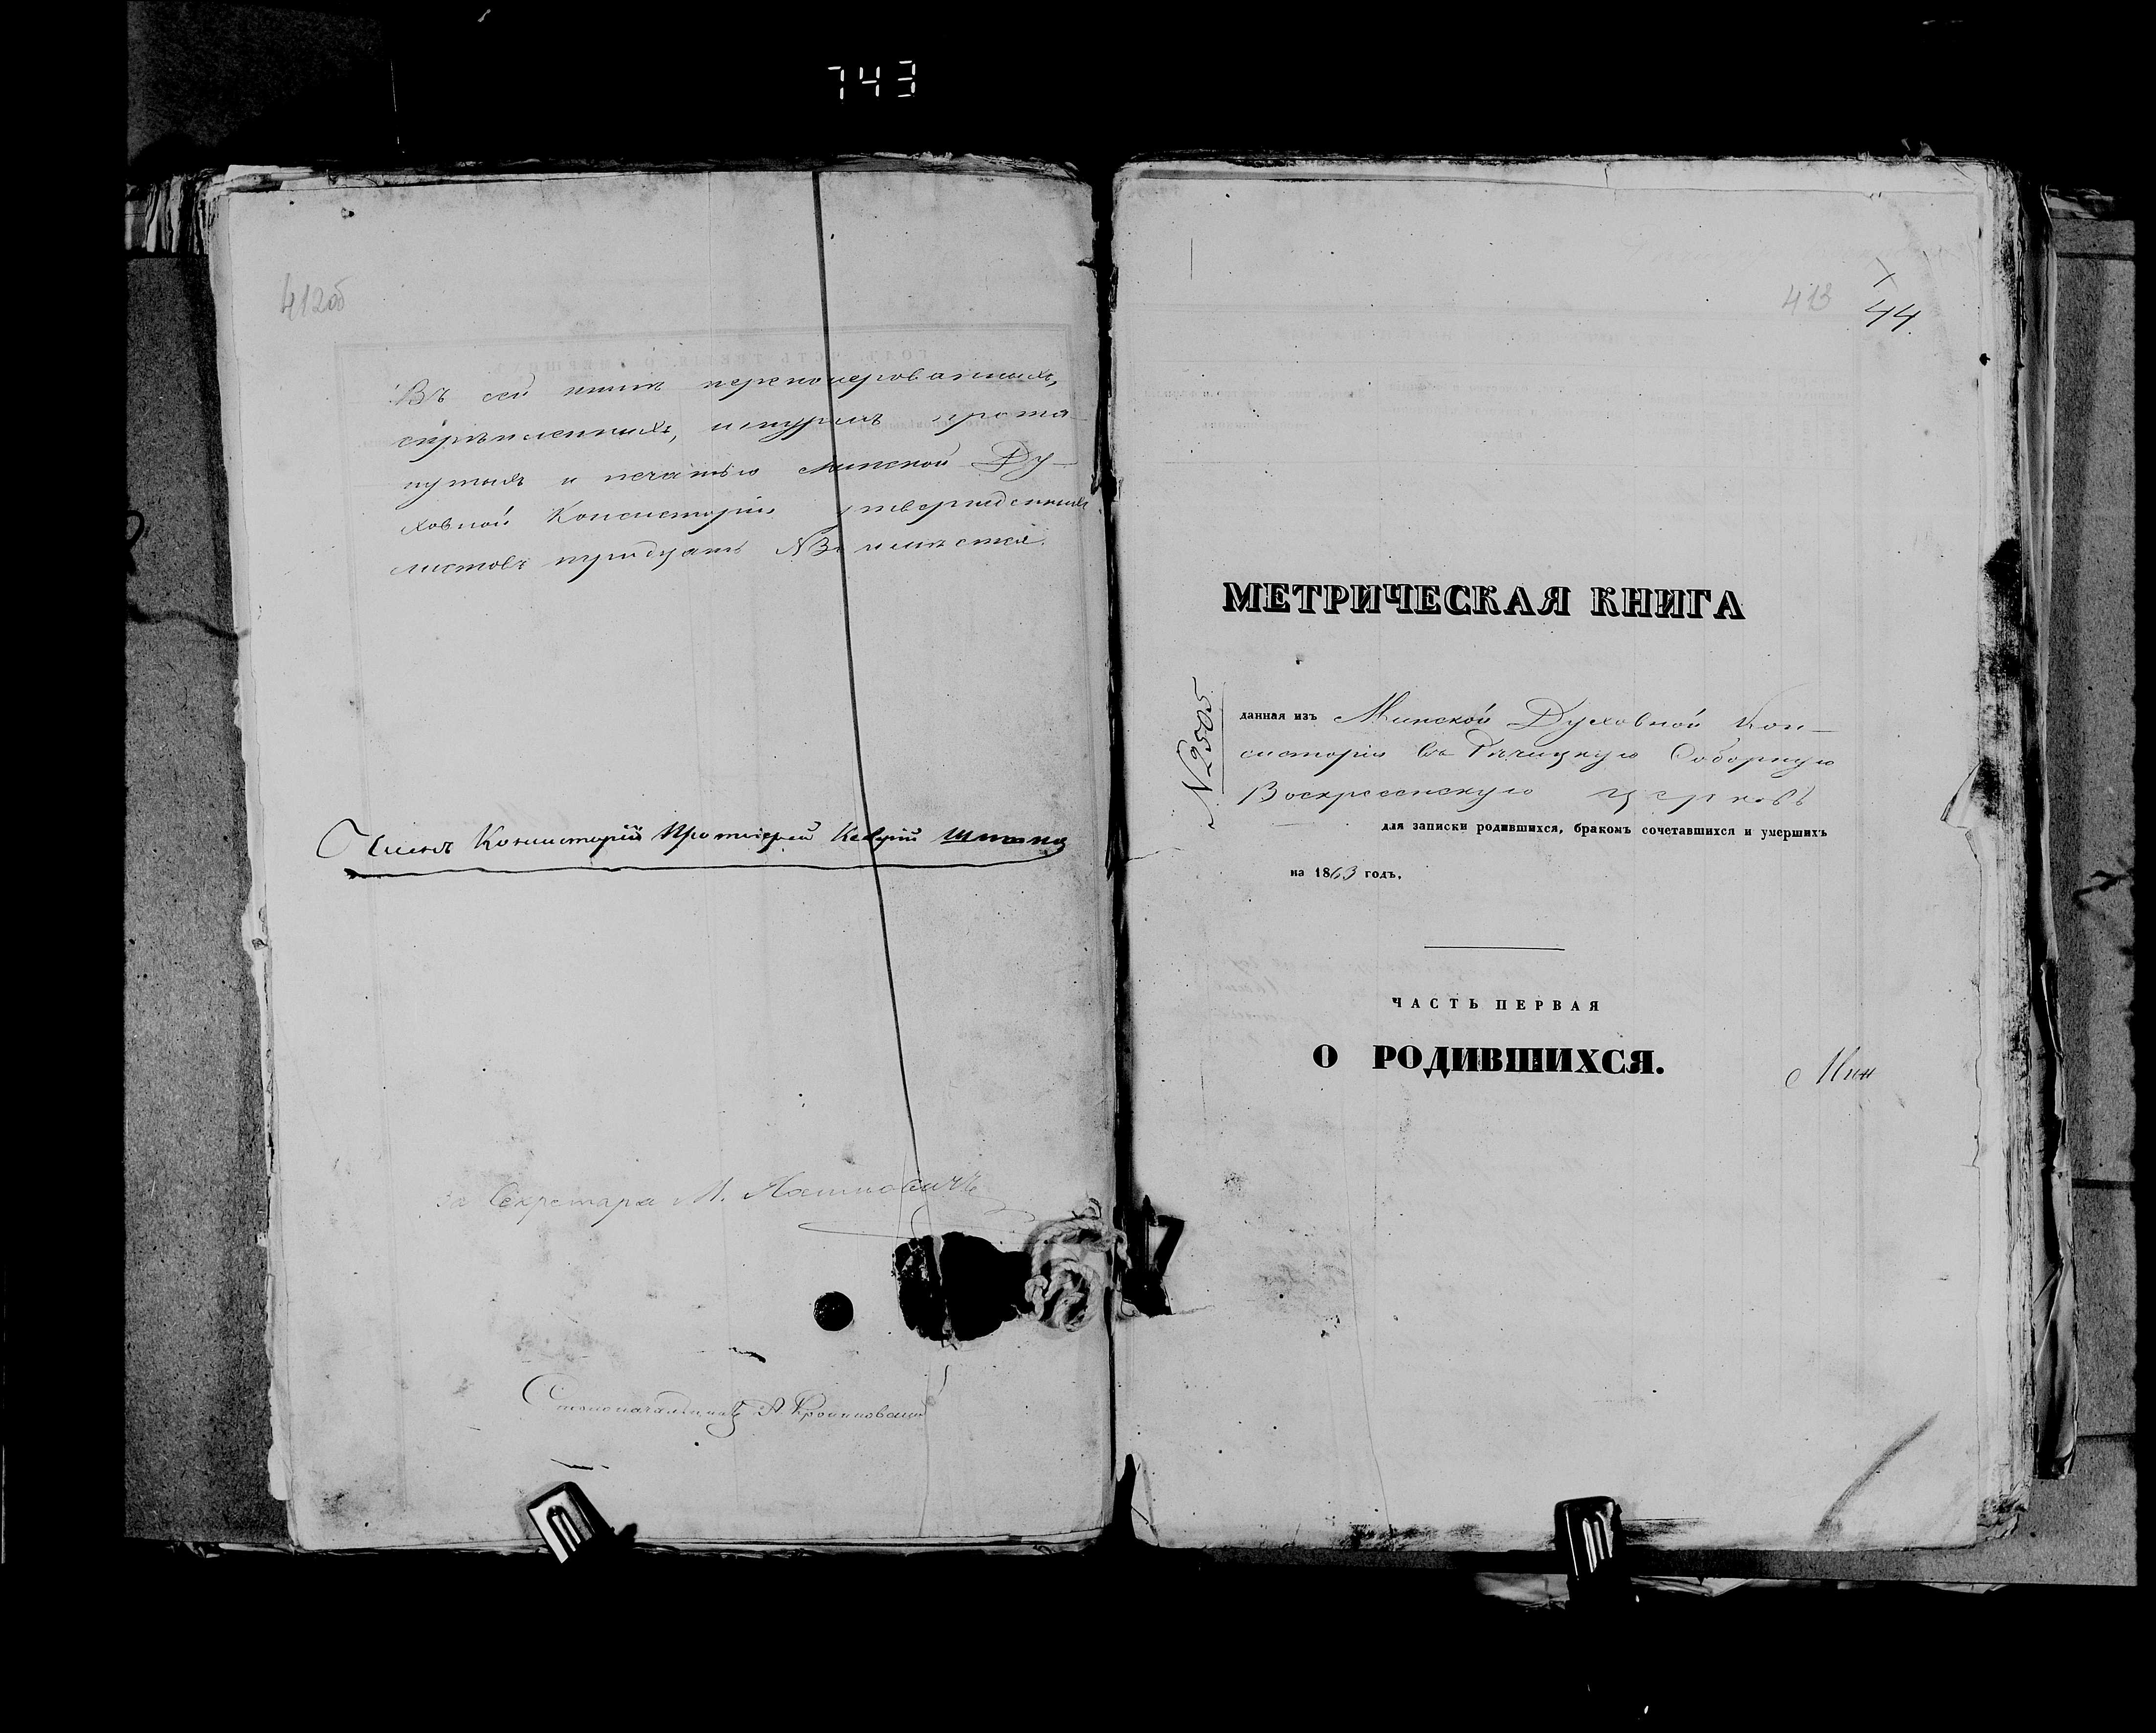 743
412об
Въ сей книгѣ перенумерованныхъ,
скрѣпленныхъ, шнуромъ прота-
нутыхъ и печатью Минской Ду-
ховной Консисторіи утвержденныхъ
листовъ тридцать №30 имѣется.
Членъ Консисторіи Протоіерей
За Секретаря М.
Столоначальникъ А
413
44
МЕТРИЧЕСКАЯ КНИГА
№2505
данная изъ Минской Духовной Кон-
систоріи въ Рѣчицкую Соборную
Воскресенскую церковь
для записки родившихся, бракомъ сочетавшихся и умершихъ
на 1863 годъ.
ЧАСТЬ ПЕРВАЯ
О РОДИВШИХСЯ.
Мин